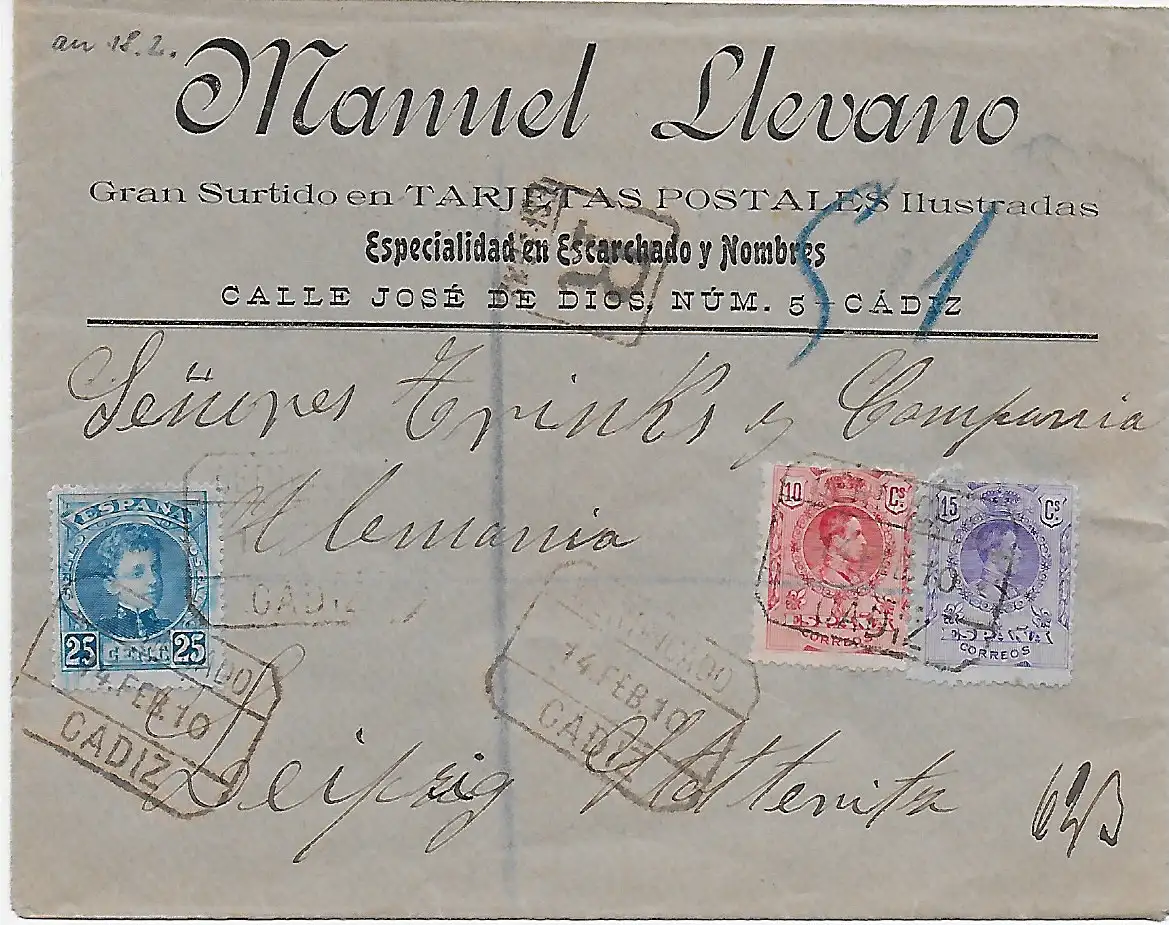 an 18.2.
Manuel Llevano
Gran Surtido en TARJETAS POSTALES Ilustradas
Especialidad en Escarchado y Nombres
CALLE JOSÉ DE DIOS, NÚM. 5 - CÁDIZ
R
51
Señores Trinks y Compania
Alemania
CADIZ
ESPAÑA
25 25
10 Cs.
CORREOS
15 Cs.
CORREOS
CADIZ
CERTIFICADO
14.FEB.10
CADIZ
CERTIFICADO
14.FEB.10
CADIZ
Leipzig